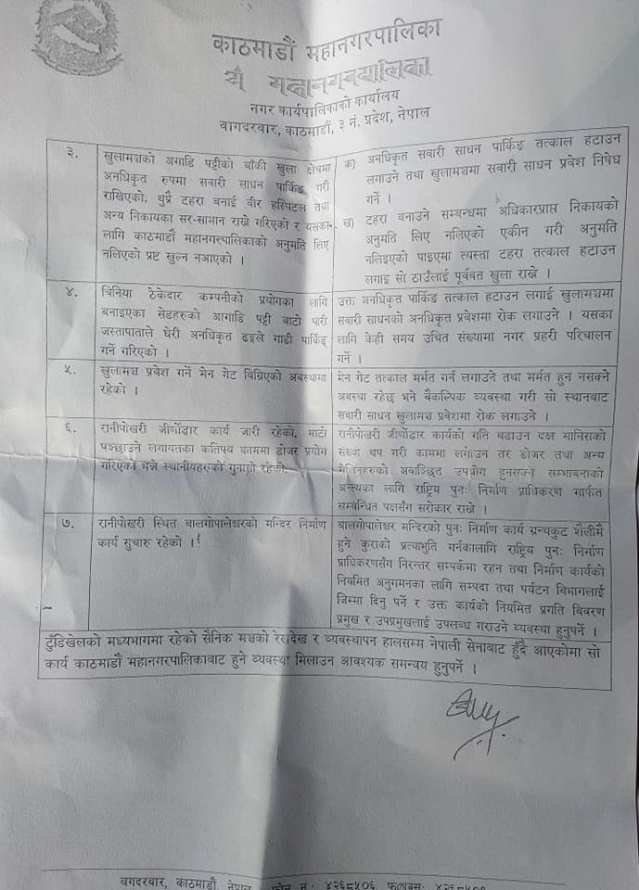 काठमाडौं महानगरपालिका
नगर कार्यपालिकाको कार्यालय
बागदरवार, काठमाडौं, ३ नं. प्रदेश, नेपाल
३.
खुलामञ्चको अगाडि पट्टीको बाँकी खुला क्षेत्रमा
अनधिकृत रुपमा सवारी साधन पार्किङ गरी
राखिएको, थुप्रै टहरा बनाई वीर हस्पिटल तथा
अन्य निकायका सर-सामान राख्ने गरिएको र यसका
लागि काठमाडौं महानगरपालिकाको अनुमति लिए
नलिएको प्रष्ट खुल्न नआएको ।
क) अनधिकृत सवारी साधन पार्किङ तत्काल हटाउन
लगाउने तथा खुलामञ्चमा सवारी साधन प्रवेश निषेध
गर्ने ।
ख) टहरा बनाउने सम्बन्धमा अधिकारप्राप्त निकायको
अनुमति लिए नलिएको एकीन गरी अनुमति
नलिइएको पाइएमा त्यस्ता टहरा तत्काल हटाउन
लगाइ सो ठाउँलाई पूर्ववत खुला राख्ने ।
४.
चिनिया ठेकेदार कम्पनीको प्रयोगका लागि
बनाइएका सेडहरुको आगाडि पट्टी बाटो पारी
जस्तापाताले घेरी अनधिकृत ढङ्गले गाडी पार्किङ्
गर्ने गरिएको ।
उक्त अनधिकृत पार्किङ तत्काल हटाउन लगाई खुलामञ्चमा
सवारी साधनको अनधिकृत प्रवेशमा रोक लगाउने । यसका
लागि केही समय उचित संख्यामा नगर प्रहरी परिचालन
गर्ने ।
५.
खुलामञ्च प्रवेश गर्ने मेन गेट बिग्रिएको अवस्थामा
रहेको ।
मेन गेट तत्काल मर्मत गर्न लगाउने तथा मर्मत हुन नसक्ने
अवस्था रहेछ भने बैकल्पिक व्यवस्था गरी सो स्थानबाट
सवारी साधन खुलामञ्च प्रवेशमा रोक लगाउने ।
६.
रानीपोखरी जीर्णोद्धार कार्य जारी रहेको, माटो
पञ्छाउने लगायतका कतिपय काममा डोजर प्रयोग
गरिएको भन्ने स्थानीयहरुको गुनासो रहेको.
रानीपोखरी जीर्णोद्धार कार्यको गति बढाउन दक्ष मानिसको
संख्या थप गरी काममा लगाउन तर डोजर तथा अन्य
मेशिनहरुको अवाञ्छित उपयोग हुनसक्ने सम्भावनाको
अन्त्यका लागि राष्ट्रिय पुनः निर्माण प्राधिकरण मार्फत
सम्बन्धित पक्षसँग सरोकार राख्ने ।
७.
रानीपोखरी स्थित बालगोपालेश्वरको मन्दिर निर्माण
कार्य सुचारु रहेको ।
बालगोपालेश्वर मन्दिरको पुनः निर्माण कार्य ग्रन्थकुट शैलीमै
हुने कुराको प्रत्याभूति गर्नकालागि राष्ट्रिय पुनः निर्माण
प्राधिकरणसँग निरन्तर सम्पर्कमा रहन तथा निर्माण कार्यको
नियमित अनुगमनका लागि सम्पदा तथा पर्यटन बिभागलाई
जिम्मा दिनु पर्ने र उक्त कार्यको नियमित प्रगति बिबरण
प्रमुख र उपप्रमुखलाई उपलब्ध गराउने व्यवस्था हुनुपर्ने ।
टुँडिखेलको मध्यभागमा रहेको सैनिक मञ्चको रेखदेख र व्यवस्थापन हालसम्म नेपाली सेनाबाट हुँदै आएकोमा सो
कार्य काठमाडौं महानगरपालिकाबाट हुने व्यवस्था मिलाउन आवश्यक समन्वय हुनुपर्ने ।
बगदरवार, काठमाडौं, नेपाल, फोन नं.: ४२६८५०६